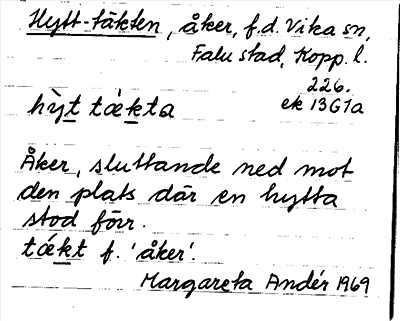 Hytt-täkten, åker, f.d. Vika sn,
Falu stad, Kopp. l.
226.
ek 13G1a
hỳt tǽkta
Åker, sluttande ned mot
den plats där en hytta
stod förr.
tǽkt f. 'åker'.
Margareta Andér 1969